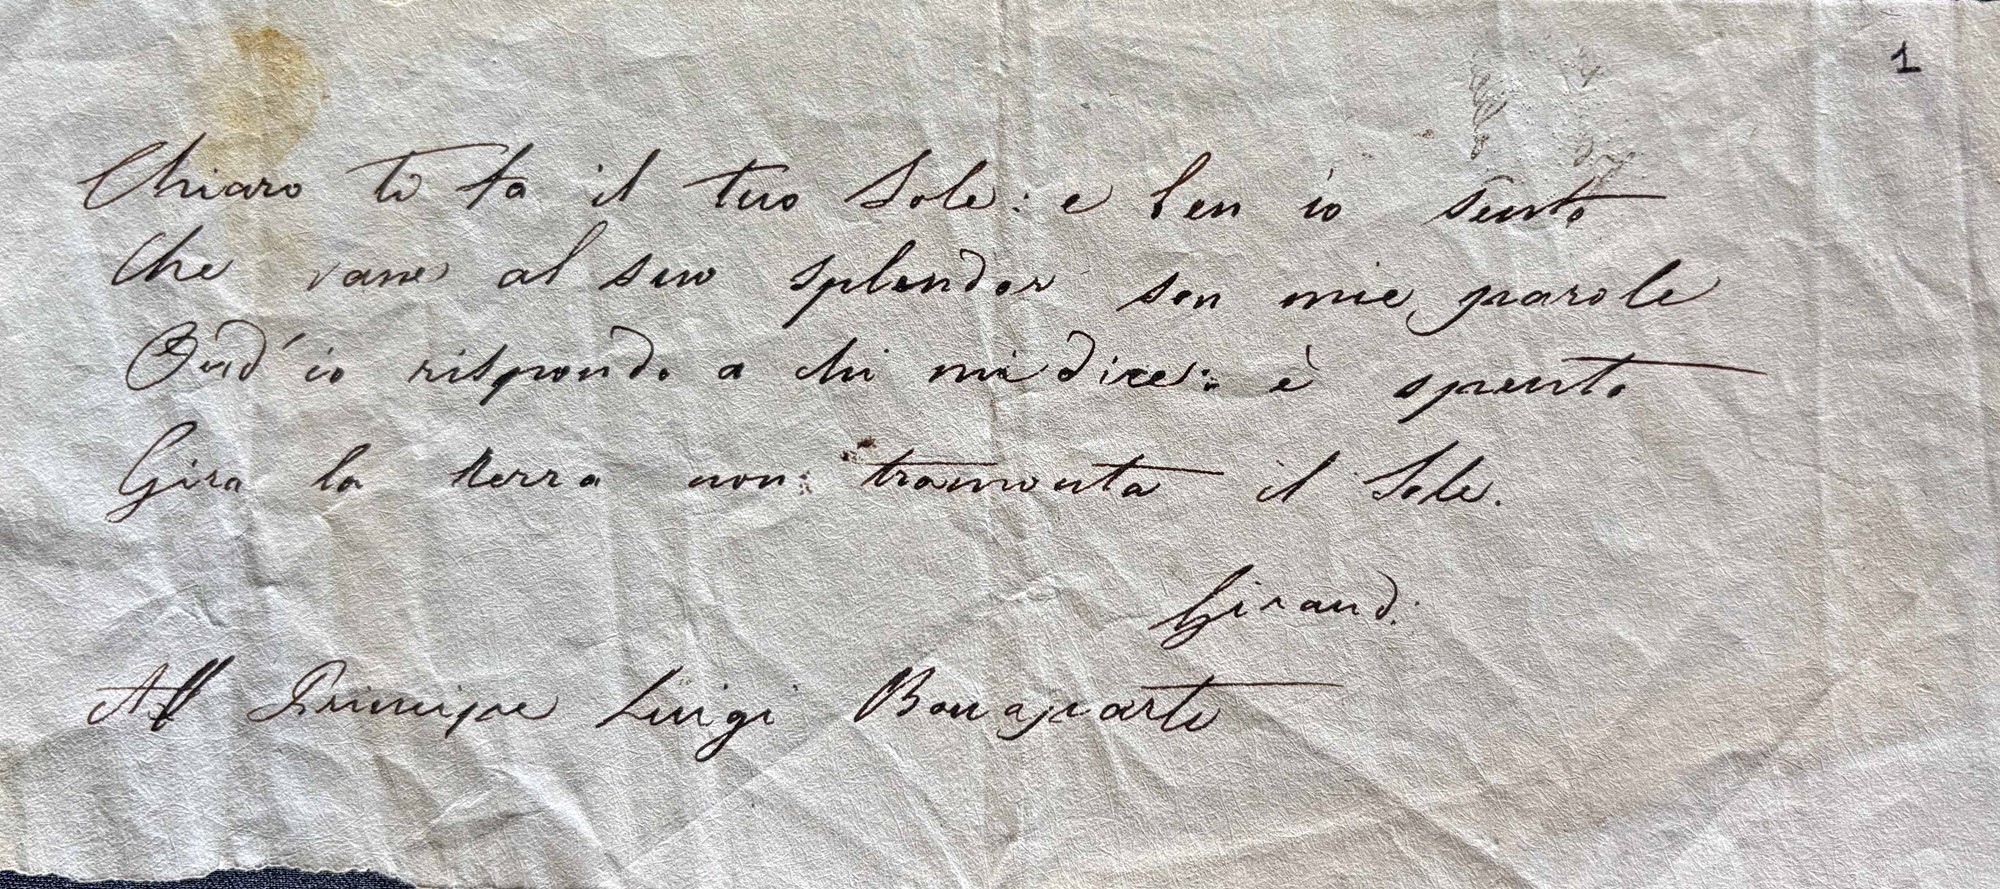 1
Chiaro ti fa il tuo Sole: e ben io sento
Che vane al suo splendor son mie parole
Ond'io rispondo a chi mi dice: è spento
Gira la terra non tramonta il Sole.
Giraud:
Al Principe Luigi Bonaparte